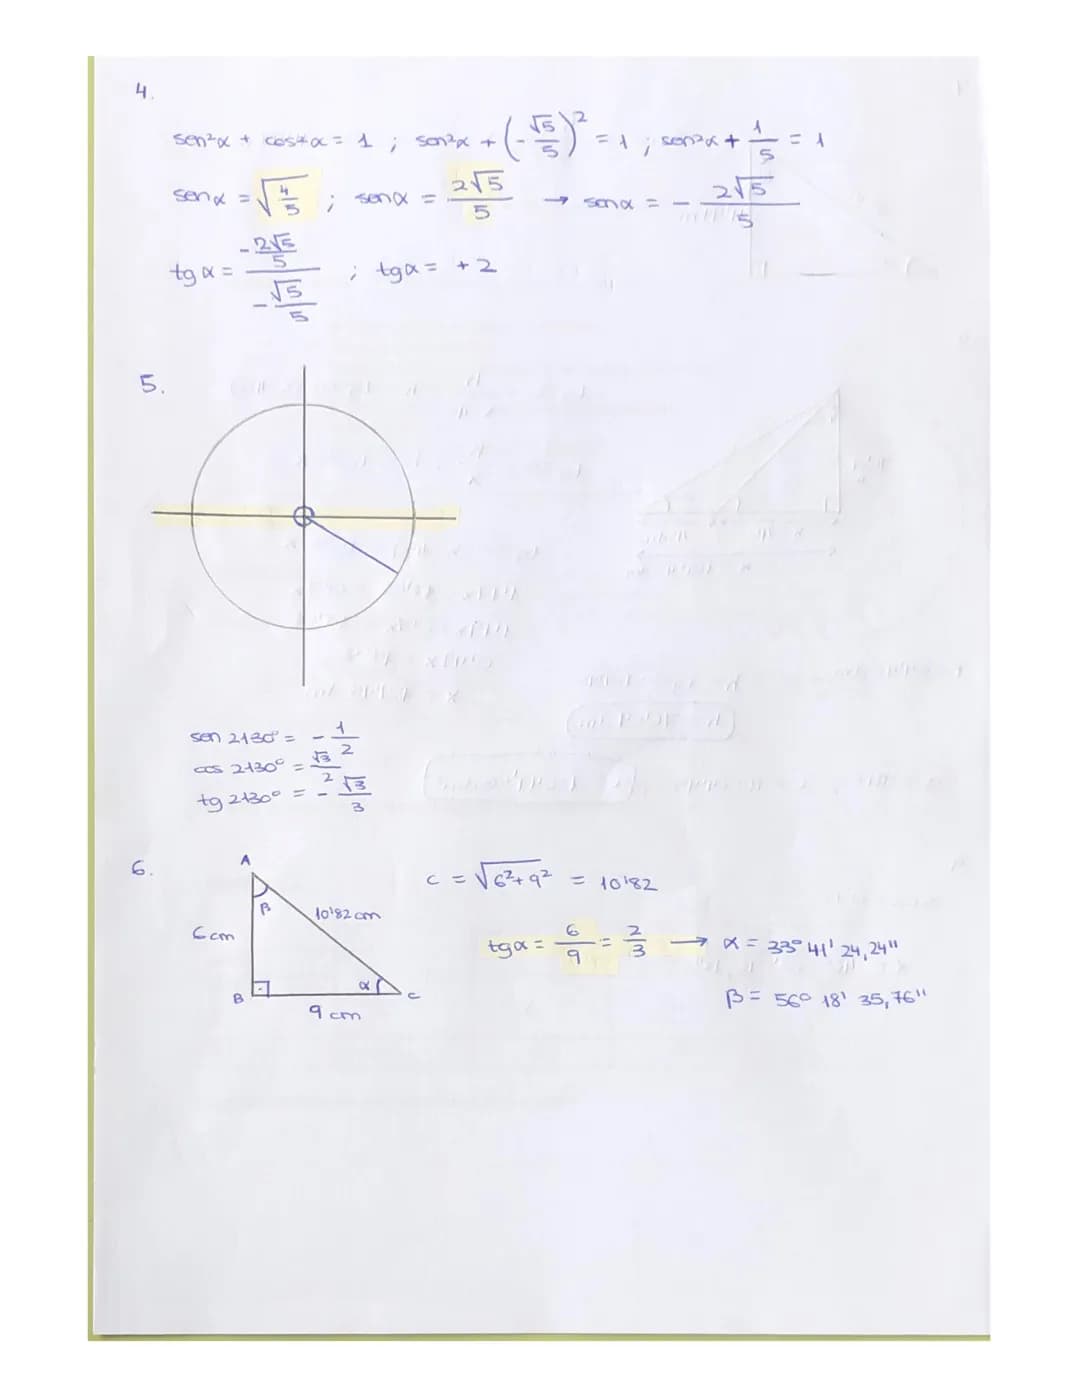 4.
sen²α + cos²α = 1 ; sen²α + (-√5/5)² = 1 ; sen²α + 1/5 = 1
sen α = √4/5 ; sen α = 2√5/5 → sen α = - 2√5/5
tg α = (-2√5/5)/(-√5/5) ; tg α = +2
5.
sen 2130° = - 1/2
cos 2130° = √3/2
tg 2130° = - √3/3
6.
A
β
10'82 cm
6 cm
B
α
C
9 cm
c = √6²+9² = 10'82
tg α = 6/9 = 2/3 → α = 33° 41' 24,24"
β = 56° 18' 35,76"